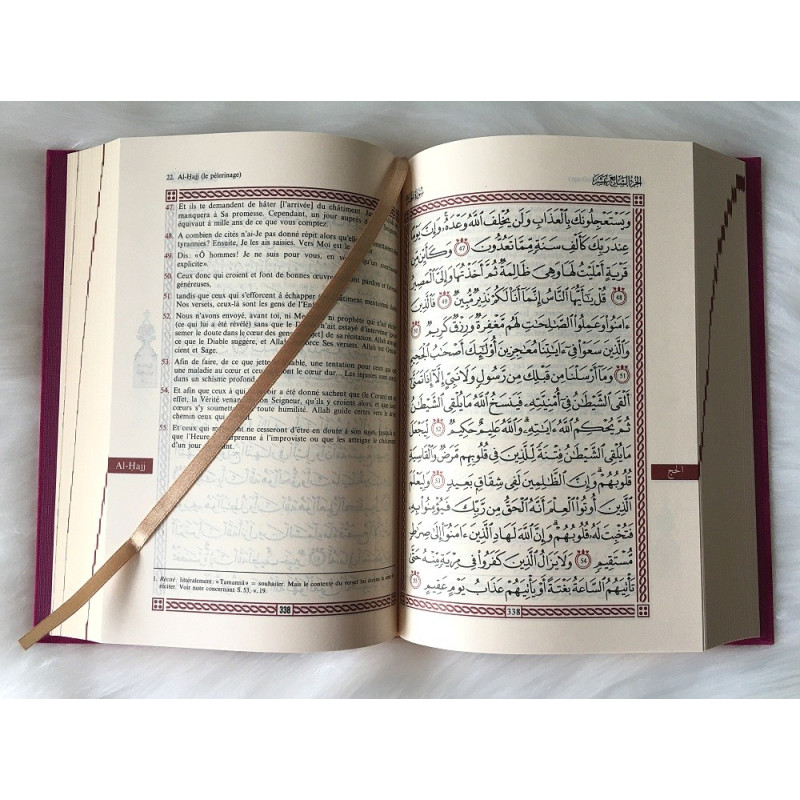 22. Al-Ḥajj (le pèlerinage)
47. Et ils te demandent de hâter [l'arrivée] du châtiment. Je
manquera à Sa promesse. Cependant, un jour auprès d
équivaut à mille ans de ce que vous comptez.
48. A combien de cités n'ai-Je pas donné répit alors qu'elle
tyrannies? Ensuite, Je les ai saisies. Vers Moi est le
49. Dis: «O hommes! Je ne suis pour vous, en vérité, qu'
explicite».
50. Ceux donc qui croient et font de bonnes œuvres auront pardon et
généreuses,
51. tandis que ceux qui s'efforcent à échapper châtiment mentionné dans
Nos versets, ceux-là sont les gens de l'Enfer
52. Nous n'avons envoyé, avant toi, ni Me ni prophète qui n'ait récité
(ce qui lui a été révélé) sans que le D n'ait essayé d'intervenir
semer le doute dans le cœur des gens jet] de sa récitation. Allah
ce que le Diable suggère, et Allah force Ses versets. Allah
cient et Sage.
53. Afin de faire, de ce que jette , une tentation pour ceux qui ont
une maladie au cœur et ceux ont le cœur dur... Les injustes sont
dans un schisme profond.
54. Et afin que ceux à qui le savoir a été donné sachent que (le Coran) est en
effet, la Vérité venant on Seigneur, qu'ils y croient alors, et que
cœurs s'y soumettent toute humilité. Allah guide certes vers le
chemin ceux qui
55. Et ceux qui ne cesseront d'être en doute à son sujet, jusqu'à
que l'Heure prenne à l'improviste ou que les atteigne le châtiment
d'un jour
Al-Ḥajj
1. Récité: littéralement: «Tamannā» = souhaiter. Mais le contexte du verset
réciter. Voir note concernant S. 53, v. 19.
338
الجزء السابع عشر
وَيَسْتَعْجِلُونَكَ بِالْعَذَابِ وَلَن يُخْلِفَ اللَّهُ وَعْدَهُ وَإِنَّ يَوْمًا
عِندَ رَبِّكَ كَأَلْفِ سَنَةٍ مِّمَّا تَعُدُّونَ 47 وَكَأَيِّن مِّن
قَرْيَةٍ أَمْلَيْتُ لَهَا وَهِيَ ظَالِمَةٌ ثُمَّ أَخَذْتُهَا وَإِلَيَّ الْمَصِيرُ
48 قُلْ يَٰٓأَيُّهَا النَّاسُ إِنَّمَا أَنَا لَكُمْ نَذِيرٌ مُّبِينٌ 49 فَالَّذِينَ
ءَامَنُوا وَعَمِلُوا الصَّٰلِحَٰتِ لَهُم مَّغْفِرَةٌ وَرِزْقٌ كَرِيمٌ 50
وَالَّذِينَ سَعَوْا فِي ءَايَٰتِنَا مُعَٰجِزِينَ أُولَٰئِكَ أَصْحَٰبُ الْجَحِيمِ
51 وَمَا أَرْسَلْنَا مِن قَبْلِكَ مِن رَّسُولٍ وَلَا نَبِيٍّ إِلَّا إِذَا تَمَنَّىٰ
أَلْقَى الشَّيْطَٰنُ فِي أُمْنِيَّتِهِ فَيَنسَخُ اللَّهُ مَا يُلْقِي الشَّيْطَٰنُ
ثُمَّ يُحْكِمُ اللَّهُ ءَايَٰتِهِ وَاللَّهُ عَلِيمٌ حَكِيمٌ 52 لِّيَجْعَلَ
مَا يُلْقِي الشَّيْطَٰنُ فِتْنَةً لِّلَّذِينَ فِي قُلُوبِهِم مَّرَضٌ وَالْقَاسِيَةِ
قُلُوبُهُمْ وَإِنَّ الظَّٰلِمِينَ لَفِي شِقَاقٍ بَعِيدٍ 53 وَلِيَعْلَمَ
الَّذِينَ أُوتُوا الْعِلْمَ أَنَّهُ الْحَقُّ مِن رَّبِّكَ فَيُؤْمِنُوا بِهِ
فَتُخْبِتَ لَهُ قُلُوبُهُمْ وَإِنَّ اللَّهَ لَهَادِ الَّذِينَ ءَامَنُوا إِلَىٰ صِرَٰطٍ
مُّسْتَقِيمٍ 54 وَلَا يَزَالُ الَّذِينَ كَفَرُوا فِي مِرْيَةٍ مِّنْهُ حَتَّىٰ
تَأْتِيَهُمُ السَّاعَةُ بَغْتَةً أَوْ يَأْتِيَهُمْ عَذَابُ يَوْمٍ عَقِيمٍ 55
الحج
338